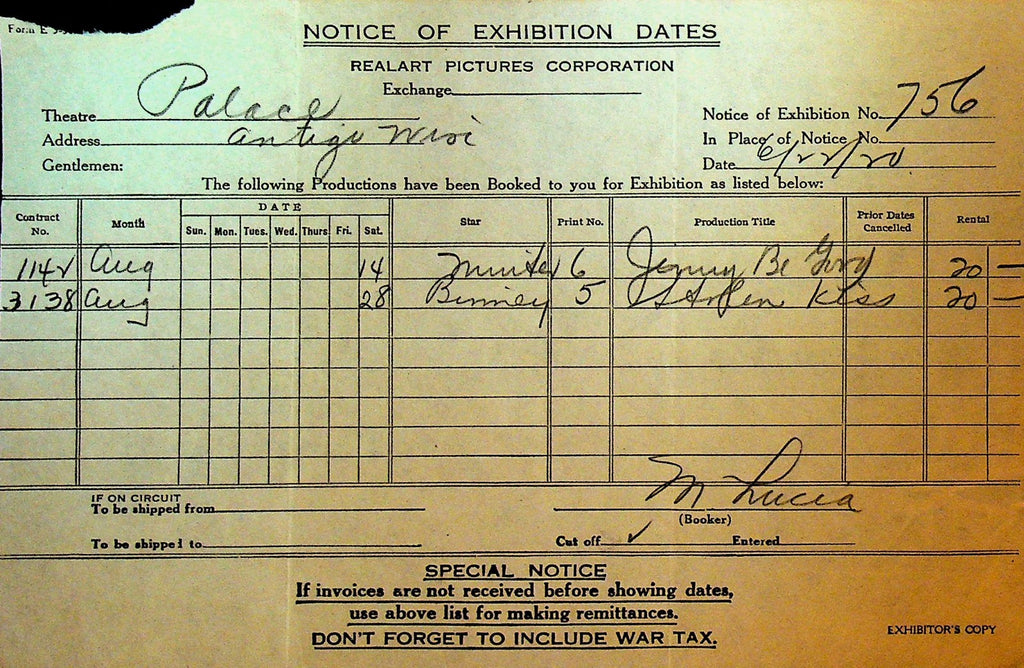 NOTICE OF EXHIBITION DATES
REALART PICTURES CORPORATION
Exchange
Theatre Palace
Notice of Exhibition No. 756
Address Antigo Wisc
In Place of Notice No.
Gentlemen:
Date 6/22/20
The following Productions have been Booked to you for Exhibition as listed below:
Contract No. Month DATE Sun. Mon. Tues. Wed. Thurs Fri. Sat. Star Print No. Production Title Prior Dates Cancelled Rental
1142 Aug 14 Minter 6 Jenny Be Good 20 —
3138 Aug 28 Binney 5 Stolen Kiss 20 —
IF ON CIRCUIT
To be shipped from
M Lucia
(Booker)
To be shipped to
Cut off ✓ Entered
SPECIAL NOTICE
If invoices are not received before showing dates,
use above list for making remittances.
DON'T FORGET TO INCLUDE WAR TAX.
EXHIBITOR'S COPY